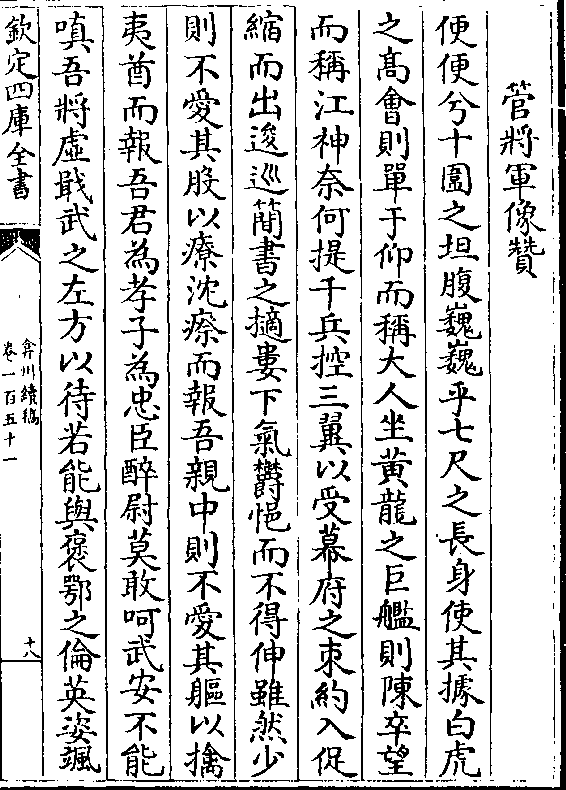 管將軍像贊
便便兮十圍之坦腹巍巍乎七尺之長身使其據白虎
之髙會則單于仰而稱大人坐黃龍之巨艦則陳卒望
而稱江神奈何提千兵控三翼以受幕府之朿約入促
縮而出逡巡蕳書之擿婁下氣欝悒而不得伸雖然少
則不愛其股以療沈瘵而報吾親中則不愛其軀以擒
夷酋而報吾君為孝子為忠臣醉尉莫敢呵武安不能
嗔吾將虛戢武之左方以待若能與褒鄂之倫英姿颯
欽定四庫全書
弇州續稿
卷一百五十一
十八